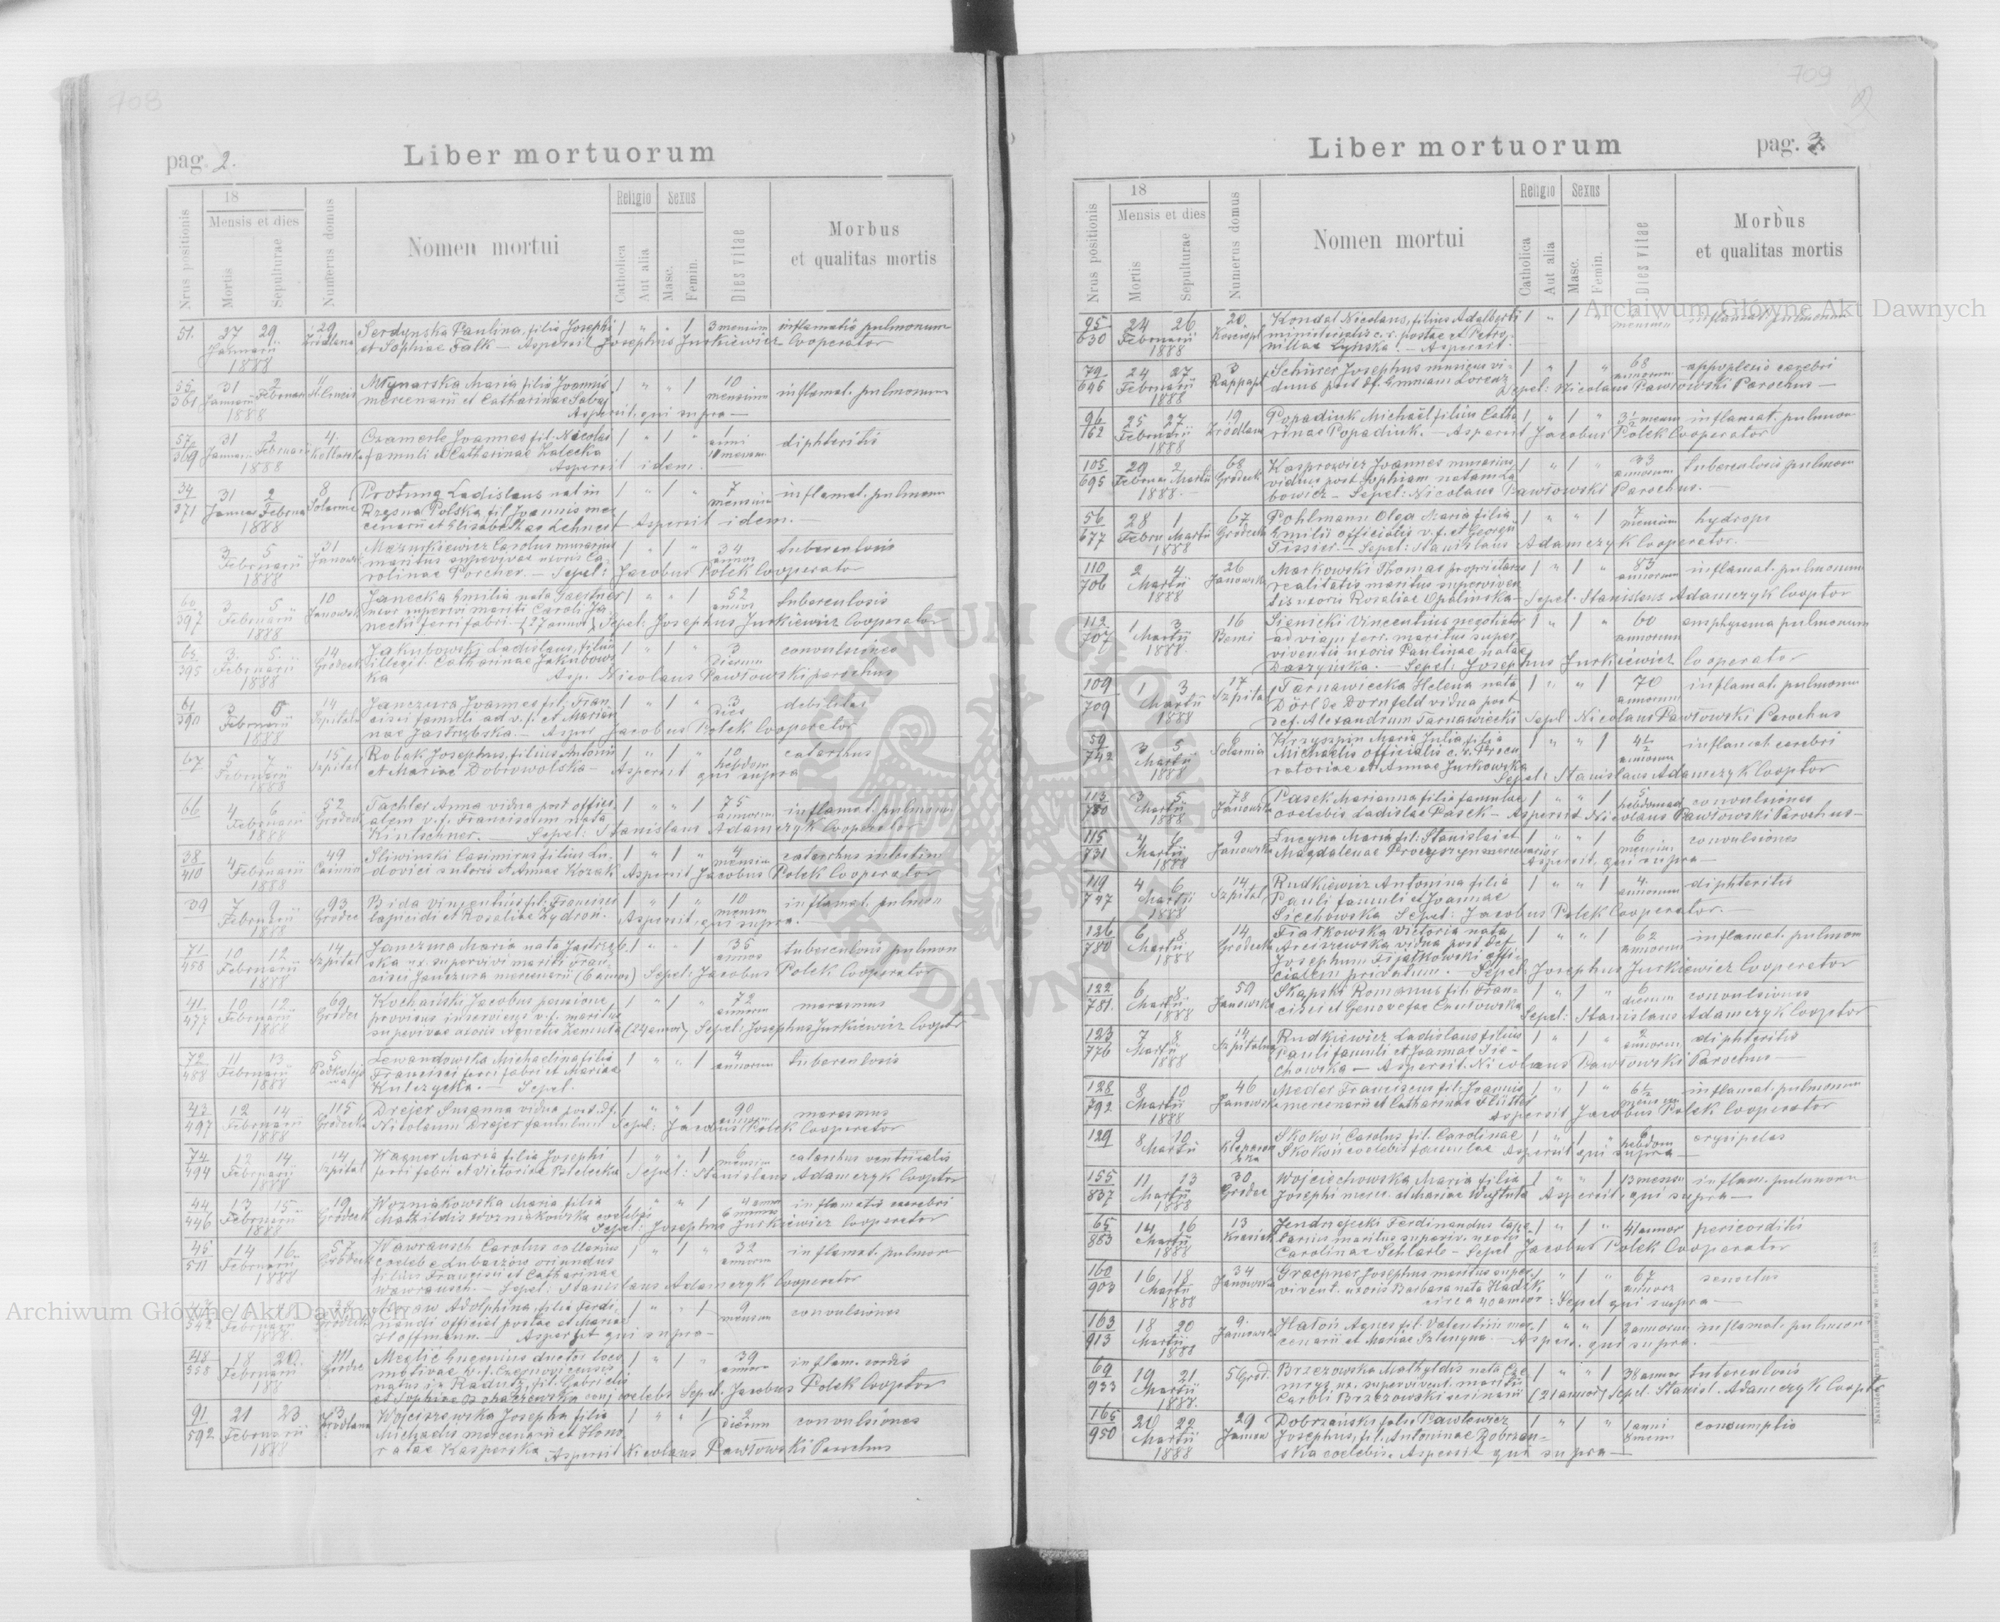 708
pag. 2.
Liber mortuorum
Nrus positionis
18
Mensis et dies
Mortis
Sepulturae
Numerus domus
Nomen mortui
Religio
Sexus
Catholica
Aut alia
Masc.
Femin.
Dies vitae
Morbus
et qualitas mortis
51. 27 29 29 Serdynska Paulina, filia Josephi 1 " " 1 3 mensium inflamatio pulmonum
Januarii et Sophiae Falk — Aspersit Josephus Jurkiewicz Cooperator
1888
55 31 2 4 Młynarska Maria filia Joannis 1 " " 1 10 inflamat. pulmonum
361 Januarii Februar mercenarii et Catharinae Sabaj mensium
1888 Aspersit. qui supra —
57 31 2 4. Joannes fil. Nicolai 1 " 1 " 1 diphteritis
369 Januarii Februar famuli et Catharinae Zalecka anni
1888 Aspersit idem. 10 mensium
34 31 2 8 Ladislaus nat in 1 " 1 " 7 inflamat. pulmonum
371 Januar Februa Solarnia Rzesna Polska fil. Joannis mer mensium
1888 cenarii et Elisabethae Lehnert Aspersit idem. —
3 5 31 Mazurkiewicz Carolus murarius 1 " 1 " 34 tuberculosis
Februarii Janowsk maritus supervivae uxoris Ca- annos
1888 rolinae Porcher. — Sepel: Jacobus Polek Cooperator
60 3 5 10 Janecka Emilia nata Gaertner 1 " " 1 52 tuberculosis
397 Februarii Janowsk uxor supervivi mariti Caroli Ja annos
1888 necki ferri fabri — (27 annos) Sepel. Josephus Jurkiewicz Cooperator
62 3. 5. 14 Jakubowski Ladislaus, filius 1 " 1 " 3 convulsiones
395 Februarii Grodeck illegit. Catharinae Jakubows dierum
1888 ka Asp. Nicolaus Pawłowski parochus
61 3 5 14 Janczura Joannes fil. Fran 1 " 1 " 3 debilitas
390 Februarii Szpitaln cisci famuli ad v. f. et Marian dies
1888 nae Jastrzybska. — Asper Jacobus Polek Cooperator
67 5 7 15 Robek Josephus, filius Antonii 1 " 1 " 10 catarrhus
Februarii Szpital et Mariae Dobrowolska — Aspersit qui supra hebdom
1888
66 4 6 52 Tachler Anna vidua post offici 1 " " 1 75 inflamat. pulmonum
Februarii Grodeck alem v. f. Franciscum nata annorum
1888 Kintschner. — Sepel: Stanislaus Adamczyk Cooperator
38 4 6 49 Sliwinski Casimirus filius Lu 1 " 1 " 4 catarrhus intestin
410 Februarii dovici sutoris et Annae Kozak Aspersit Jacobus Polek Cooperator
1888
39 7 9 93 Bida Vincentius fil. Francisci 1 " 1 " 10 inflamat. pulmon
Februarii Grodec lapicidi et Rosaliae Zydron. Aspersit. qui supra. mensium
1888
71 10 12 14 Janczura Maria nata Jastrze b. 1 " " 1 35 tuberculosis pulmon
458 Februarii Szpital ska ux. supervivi mariti Fran annos
1888 cisci Janczura mercenarii (6 annos) Sepel: Jacobus Polek Cooperator
41 10 12 69 Kochański Jacobus pensione 1 " 1 " 72 marasmus
477 Februarii Grodec provisus inserviens v. f. maritus annorum
1888 supervivae uxoris Agnetis Zemuta (24 annos) Sepel: Josephus Jurkiewicz Cooptr
72 11 13 5 Lewandowska Michaelina filia 1 " " 1 4 tuberculosis
488 Februarii Francisci ferri fabri et Mariae annorum
1888 Kulczycka. — Sepel.
43 12 14 115 Drejer Susanna vidua post. df. 1 " " 1 90 marasmus
497 Februarii Grodecka Nicolaum Drejer famulum Sepel: Jacobus Polek Cooperator
1888
74 12 14 14 Wagner Maria filia Josephi 1 " " 1 6 catarrhus ventricalis
494 Februarii Szpital ferri fabri et Victoriae Bzlebecka Sepel: Stanislaus Adamczyk Cooptor
1888
44 13 15 19 Wozniakowska Maria filia 1 " " 1 4 annor inflamatio cerebri
446 Februarii Grodeck Mathildis Wozniakowska coelebis 6 mensium
1888 Sepel: Josephus Jurkiewicz Cooperator
45 14 16 57 Wawrausch Carolus cellarius 1 " 1 " 32 inflamat. pulmon
511 Februarii Grodeck coeleb e Lubaczów oriundus annorum
1888 filius Francisci et Catharinae
Wawrausch. — Sepel: Stanislaus Adamczyk Cooperator
Adolphina, filia Ferdi 1 " " 1 9 convulsiones
542 Februarii nandi official postae et Mariae mensium
1888 Hoffmann. — Aspersit qui supra —
48 18 20 111 Eugenius ductor loco 1 " 1 " 39 inflam. cordis
558 Februarii Grodec motivae v. f. Czernoviensis annor
188 natus in Radutz, fil. Gabrielis
et Sophiae coelebs Sepel. Jacobus Polek Cooptor
91 21 23 3 Wojciszewska Josepha filia 1 " " 1 2 convulsiones
592 Februarii Zrodlana Michaelis mercenarii et Hono dierum
1888 ratae Kasperska Aspersit Nicolaus Pawłowski Parochus
709
Liber mortuorum
pag. 3.
Nrus positionis
18
Mensis et dies
Mortis
Sepulturae
Numerus domus
Nomen mortui
Religio
Sexus
Catholica
Aut alia
Masc.
Femin.
Dies vitae
Morbus
et qualitas mortis
95 24 26 20. Kondal Nicolaus, filius Adalberti 1 " 1 inflamat pulmonum
630 Februarii ministerialis c. r. postae et Petro mensium
1888 nillae Łyńska. — Aspersit.
79 24 27 3 Schirer Josephus musicus vi- 1 " 1 " 68 appoplexis cerebri
696 Februarii Rappap duus post df. Emmam Lorenz annorum
1888 Sepel: Nicolaus Pawłowski Parochus —
96 25 27 19 Popadiuk Michaël filius Catha 1 " 1 " 3½ mensium inflamat. pulmon
162 Februarii Zrodlana rinae Popadiuk. — Aspersit Jacobus Polek Cooperator
1888
105 29 2 68 Kasprowicz Joannes murarius 1 " 1 " 33 tuberculosis pulmon
695 Februar Martii Grodeck viduus post Sophiam natam La annorum
1888. — bowicz — Sepel: Nicolaus Pawłowski Parochus. —
56 28 1 67 Pohlmann Olga Maria filia 1 " " 1 7 hydrops
677 Febru Martii Grodecka Emilii officialis v. f. et Georgii mensium
1888 Tissier. — Sepel: Stanislaus Adamczyk Cooperator. —
110 2 4 26 Markowski Thomas proprietarius 1 " 1 " 83 inflamat. pulmonum
706 Martii Janowsk realitatis maritus superviven annorum
1888 tis uxoris Rosaliae Opalinska — Sepel. Stanislaus Adamczyk Cooptor
112 1 3 16 Sienicki Vincentius negotiator 1 " 1 " 60 emphysema pulmonum
707 Martii Bemi ad viam ferr. maritus super annorum
1888. viventis uxoris Paulinae natae
Daszyńska. — Sepel: Josephus Jurkiewicz Cooperator
109 1 3 17 Tarnawiecka Helena nata 1 " " 1 70 inflamat. pulmonum
709 Martii Szpital Dörl de Dornfeld vidua post annorum
1888 def. Alexandrum Tarnawiecki Sepel Nicolaus Pawłowski Parochus
59 3 5 6 Krzyszpin Maria Julia filia 1 " " 1 4½ inflamat cerebri
742 Martii Solarnia Michaelis officialis c. r. Procu annorum
1888 ratoriae et Annae Jurkowska
Sepel: Stanislaus Adamczyk Cooptor
113 3 5 78 Pasek Marianna filia famulae 1 " " 1 5 convulsiones
730 Martii Janowska coelebis Ladislae Pasek — Aspersit Nicolaus Pawłowski Parochus —
1888
115 4 6 9 Lucyna Maria fil: Stanislai et 1 " " 1 6 convulsiones
731 Martii Janowska Magdalenae mercenarior mensium
1888 Aspersit, qui supra —
119 4 6 14 Rudkiewicz Antonina filia 1 " " 1 4. diphteritis
747 Martii Szpital Pauli famuli et Joannae annorum
1888 Siechowska Sepel: Jacobus Polek Cooperator. —
126 6 8 14 Fiałkowska Victoria nata 1 " " 1 62 inflamat. pulmon
780 Martii Grodecka Arciszewska vidua post def annorum
1888 Josephum Fijałkowski offi-
cialem privatum. — Sepel Josephus Jurkiewicz Cooperator
122 6 8 59 Skapski Romanus fil. Fran 1 " 1 " 6 convulsiones
781. Martii Janowska cisci et Genovefae dierum
1888 Sepel: Stanislaus Adamczyk Cooptor
123 7 8 14 Rudkiewicz Ladislaus filius 1 " 1 " 2 diphteritis
776 Martii Szpitalna Pauli famuli et Joannae Sie- annorum
1888 chowska — Aspersit. Nicolaus Pawłowski Parochus —
128 8 10 46 Meder Franciscus fil. Joannis 1 " 1 " 6½ inflamat. pulmonum
792 Martii Janowska mercenarii et Catharinae mensium
1888 Aspersit Jacobus Polek Cooperator
129 8 10 9 Skokoń Carolus, fil. Carolinae 1 " 1 " hebdom erysipelas
Martii Skokoń coelebis famulae Aspersit qui supra —
155 11 13 30 Wojciechowska Maria filia 1 " " 1 13 mensium inflam. pulmonum
837 Martii Grodec Josephi merc. et Mariae Wojtuta Aspersit qui supra —
1888
65 14 16 13 Jendrzejecki Ferdinandus tape- 1 " 1 " 41 annor pericorditis
883 Martii tarius maritus superviv. uxoris
1888 Carolinae — Sepel Jacobus Polek Cooperator
160 16 18 34 Graepner Josephus maritus super 1 " 1 " 67 senectus
903 Martii Janowska vivent. uxoris Barbara nata annor
1888 circa 40 annor: Sepel qui supra —
163 18 20 9. Hatoń Agnes fil. Valentini mer- 1 " " 1 2 annorum inflamat. pulmon.
913 Martii Janowsk cenarii et Mariae — Aspers. qui supra.
1888
69 19 21 5 Grod. Brzezowska Mathyldis nata 1 " " 1 38 annor tuberculosis
933 Martii ux. supervivent. mariti
1888. Caroli Brzezowski (21 annor) Sepel. Stanisl. Adamczyk Cooptr
165 20 22 29 Dobrzański false Pawlewicz 1 " 1 " 1 anni consumptio
950 Martii Janow Josephus, fil. Antoninae Dobrzan-
1888 ska coelebis. Aspersit qui supra —
Archiwum Główne Akt Dawnych
Archiwum Główne Akt Dawnych
ARCHIWUM GŁÓWNE AKT DAWNYCH